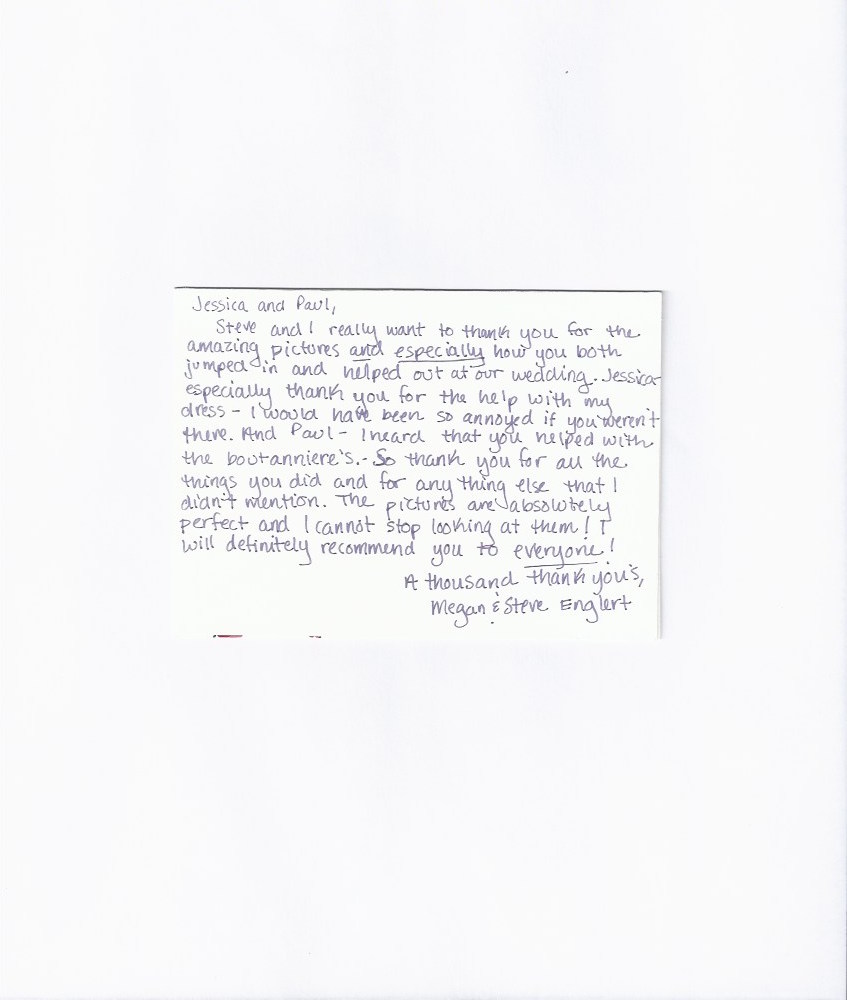 Jessica and Paul,
Steve and I really want to thank you for the
amazing pictures and especially how you both
jumped in and helped out at our wedding. Jessica-
especially thank you for the help with my
dress - I would have been so annoyed if you weren't
there. And Paul - I heard that you helped with
the boutanniere's. - So thank you for all the
things you did and for anything else that I
didn't mention. The pictures are absolutely
perfect and I cannot stop looking at them! I
will definitely recommend you to everyone!
A thousand thank you's,
Megan & Steve Englert